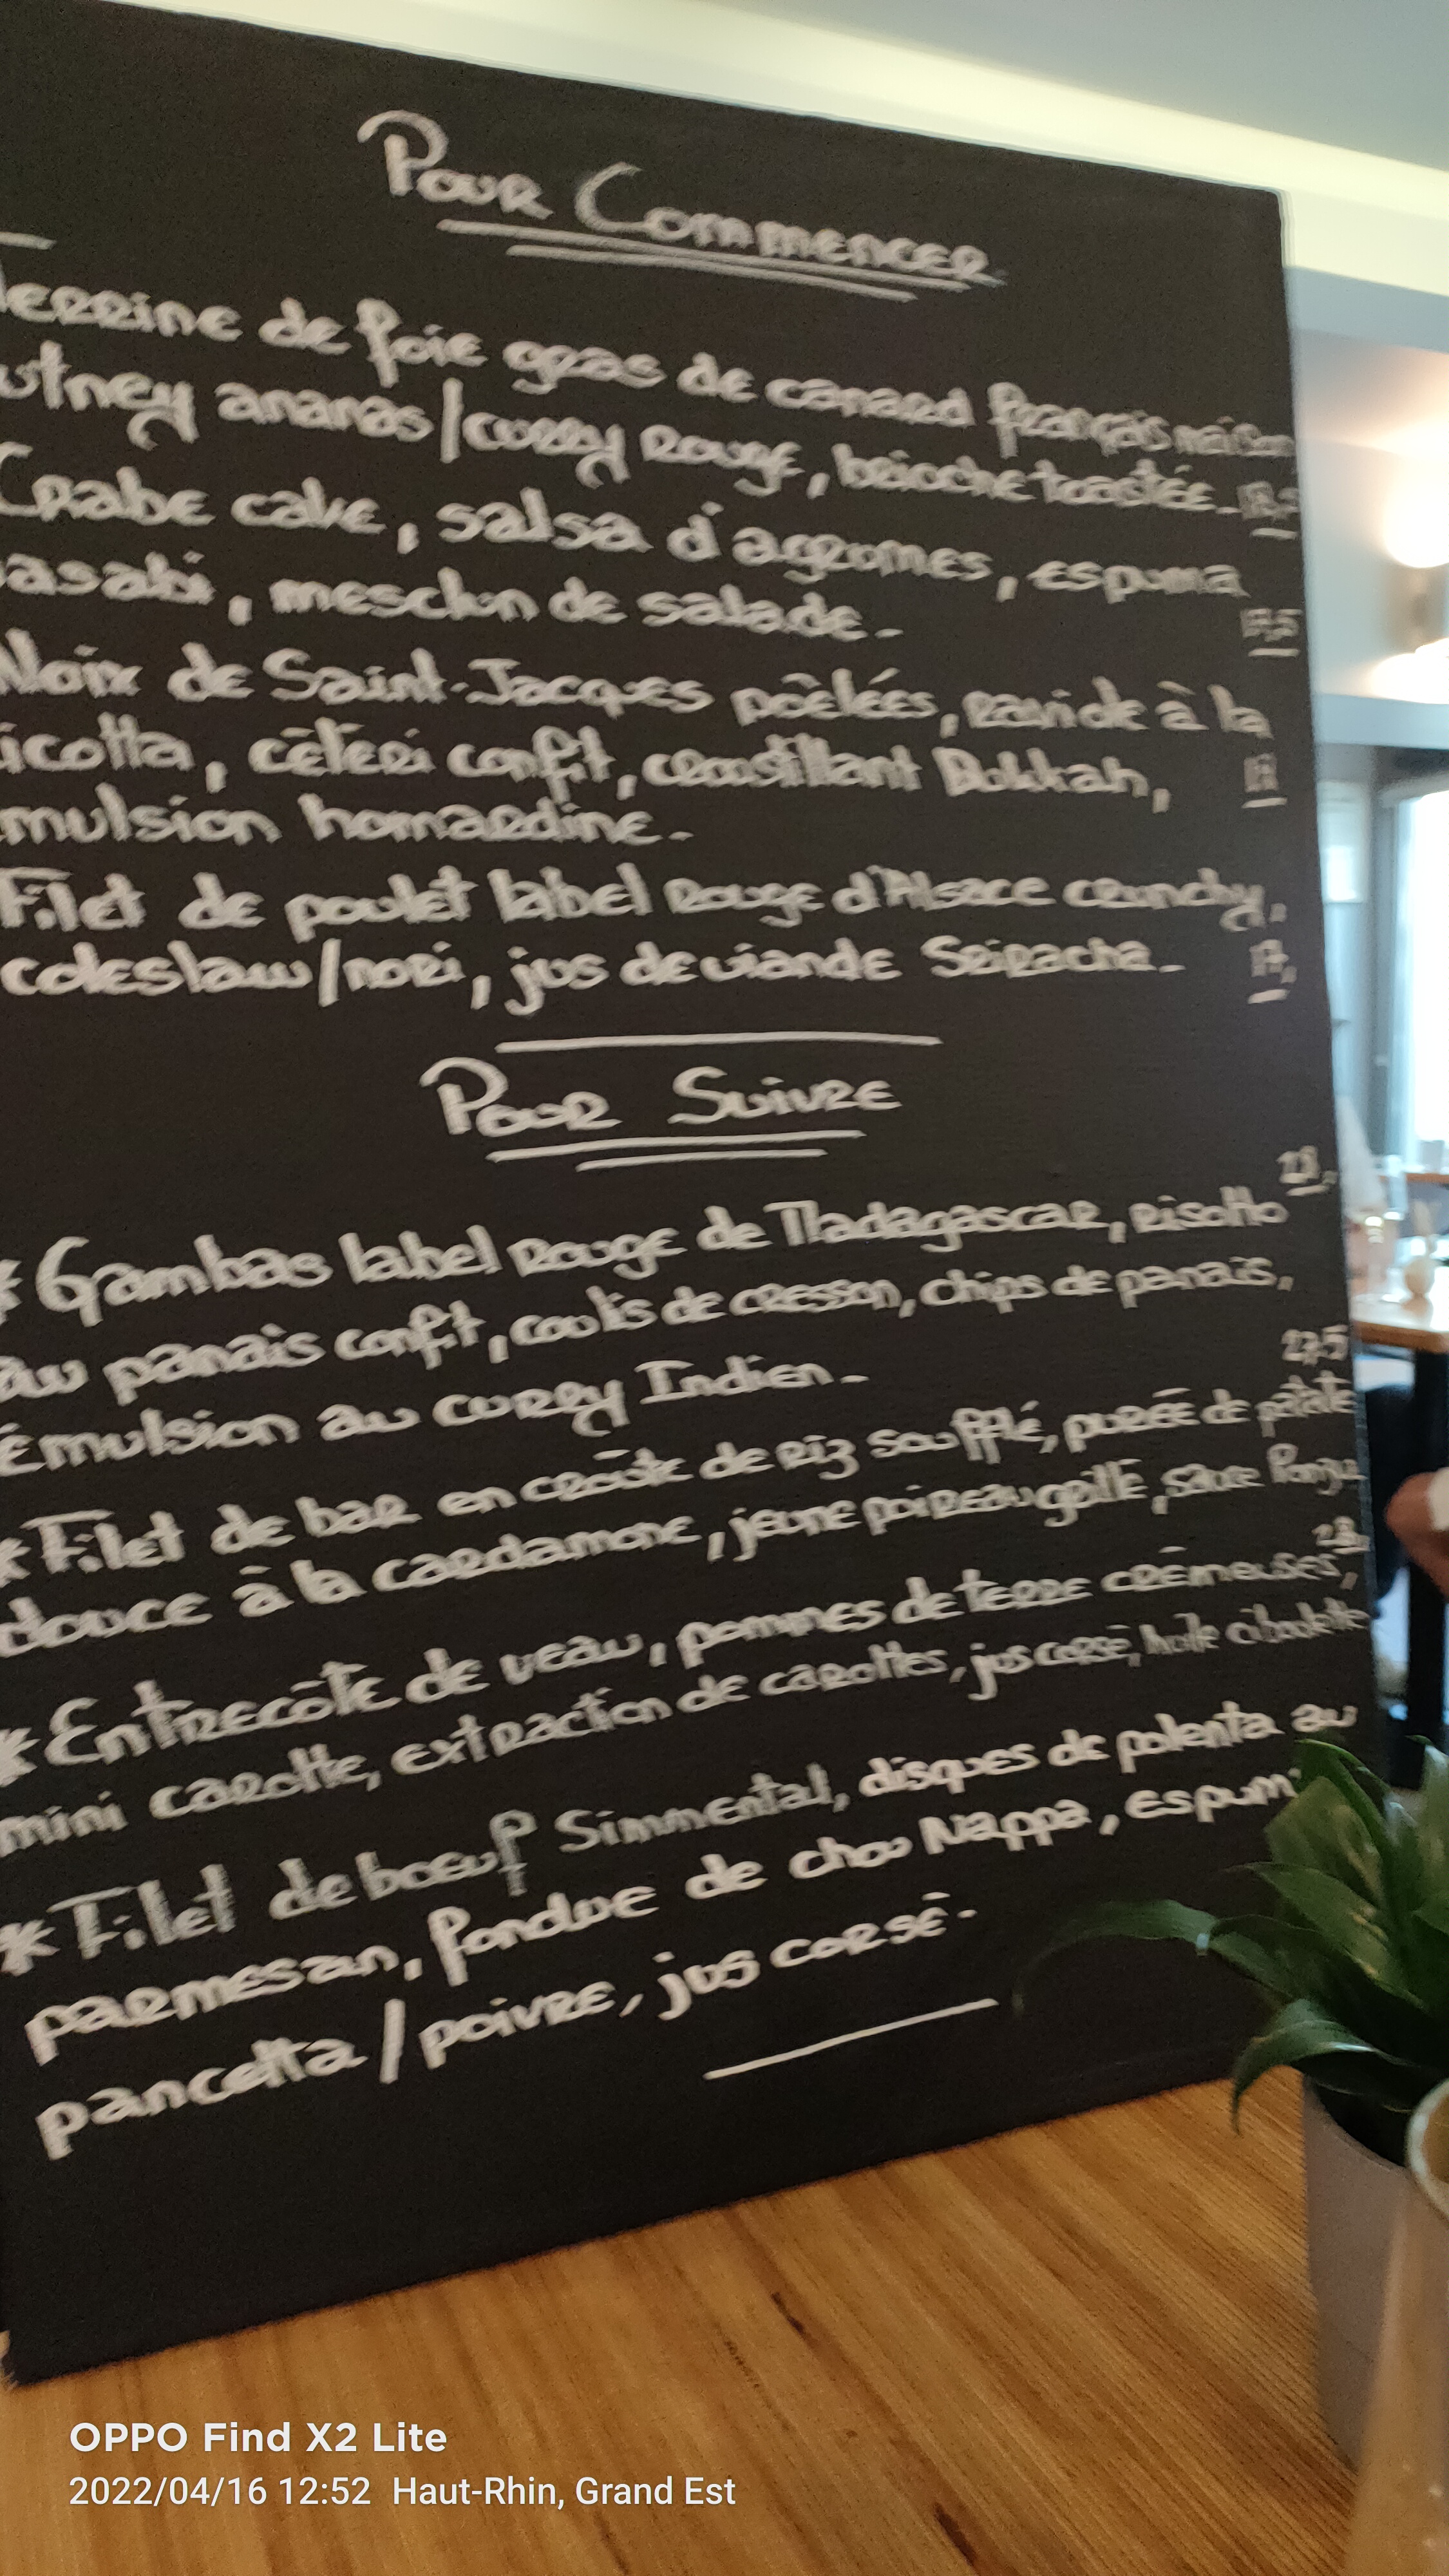 Pour Commencer
Terrine de foie gras de canard français maison
utney ananas/curry rouge, brioche toastée.
Crabe cake, salsa d'agrumes, espuma
asabi, mesclun de salade. 17,5
Noix de Saint-Jacques poêlées, raviole à la
icotta, céleri confit, croustillant Dukkah,
mulsion homardine.
Filet de poulet label Rouge d'Alsace crunchy,
coleslaw/nori, jus de viande Sriracha. 17,
Pour Suivre
28,
* Gambas label Rouge de Madagascar, risotto
au panais confit, coulis de cresson, chips de panais,
émulsion au curry Indien.
27,5
* Filet de bar en croûte de riz soufflé, purée de patate
douce à la cardamone, jeune poireau grillé, sauce Ponzu
* Entrecôte de veau, pommes de terre crémeuses,
mini carotte, extraction de carottes, jus corsé, huile ciboulette
* Filet de boeuf Simmental, disques de polenta au
parmesan, fondue de chou Nappa, espum
pancetta/poivre, jus corsé.
OPPO Find X2 Lite
2022/04/16 12:52 Haut-Rhin, Grand Est